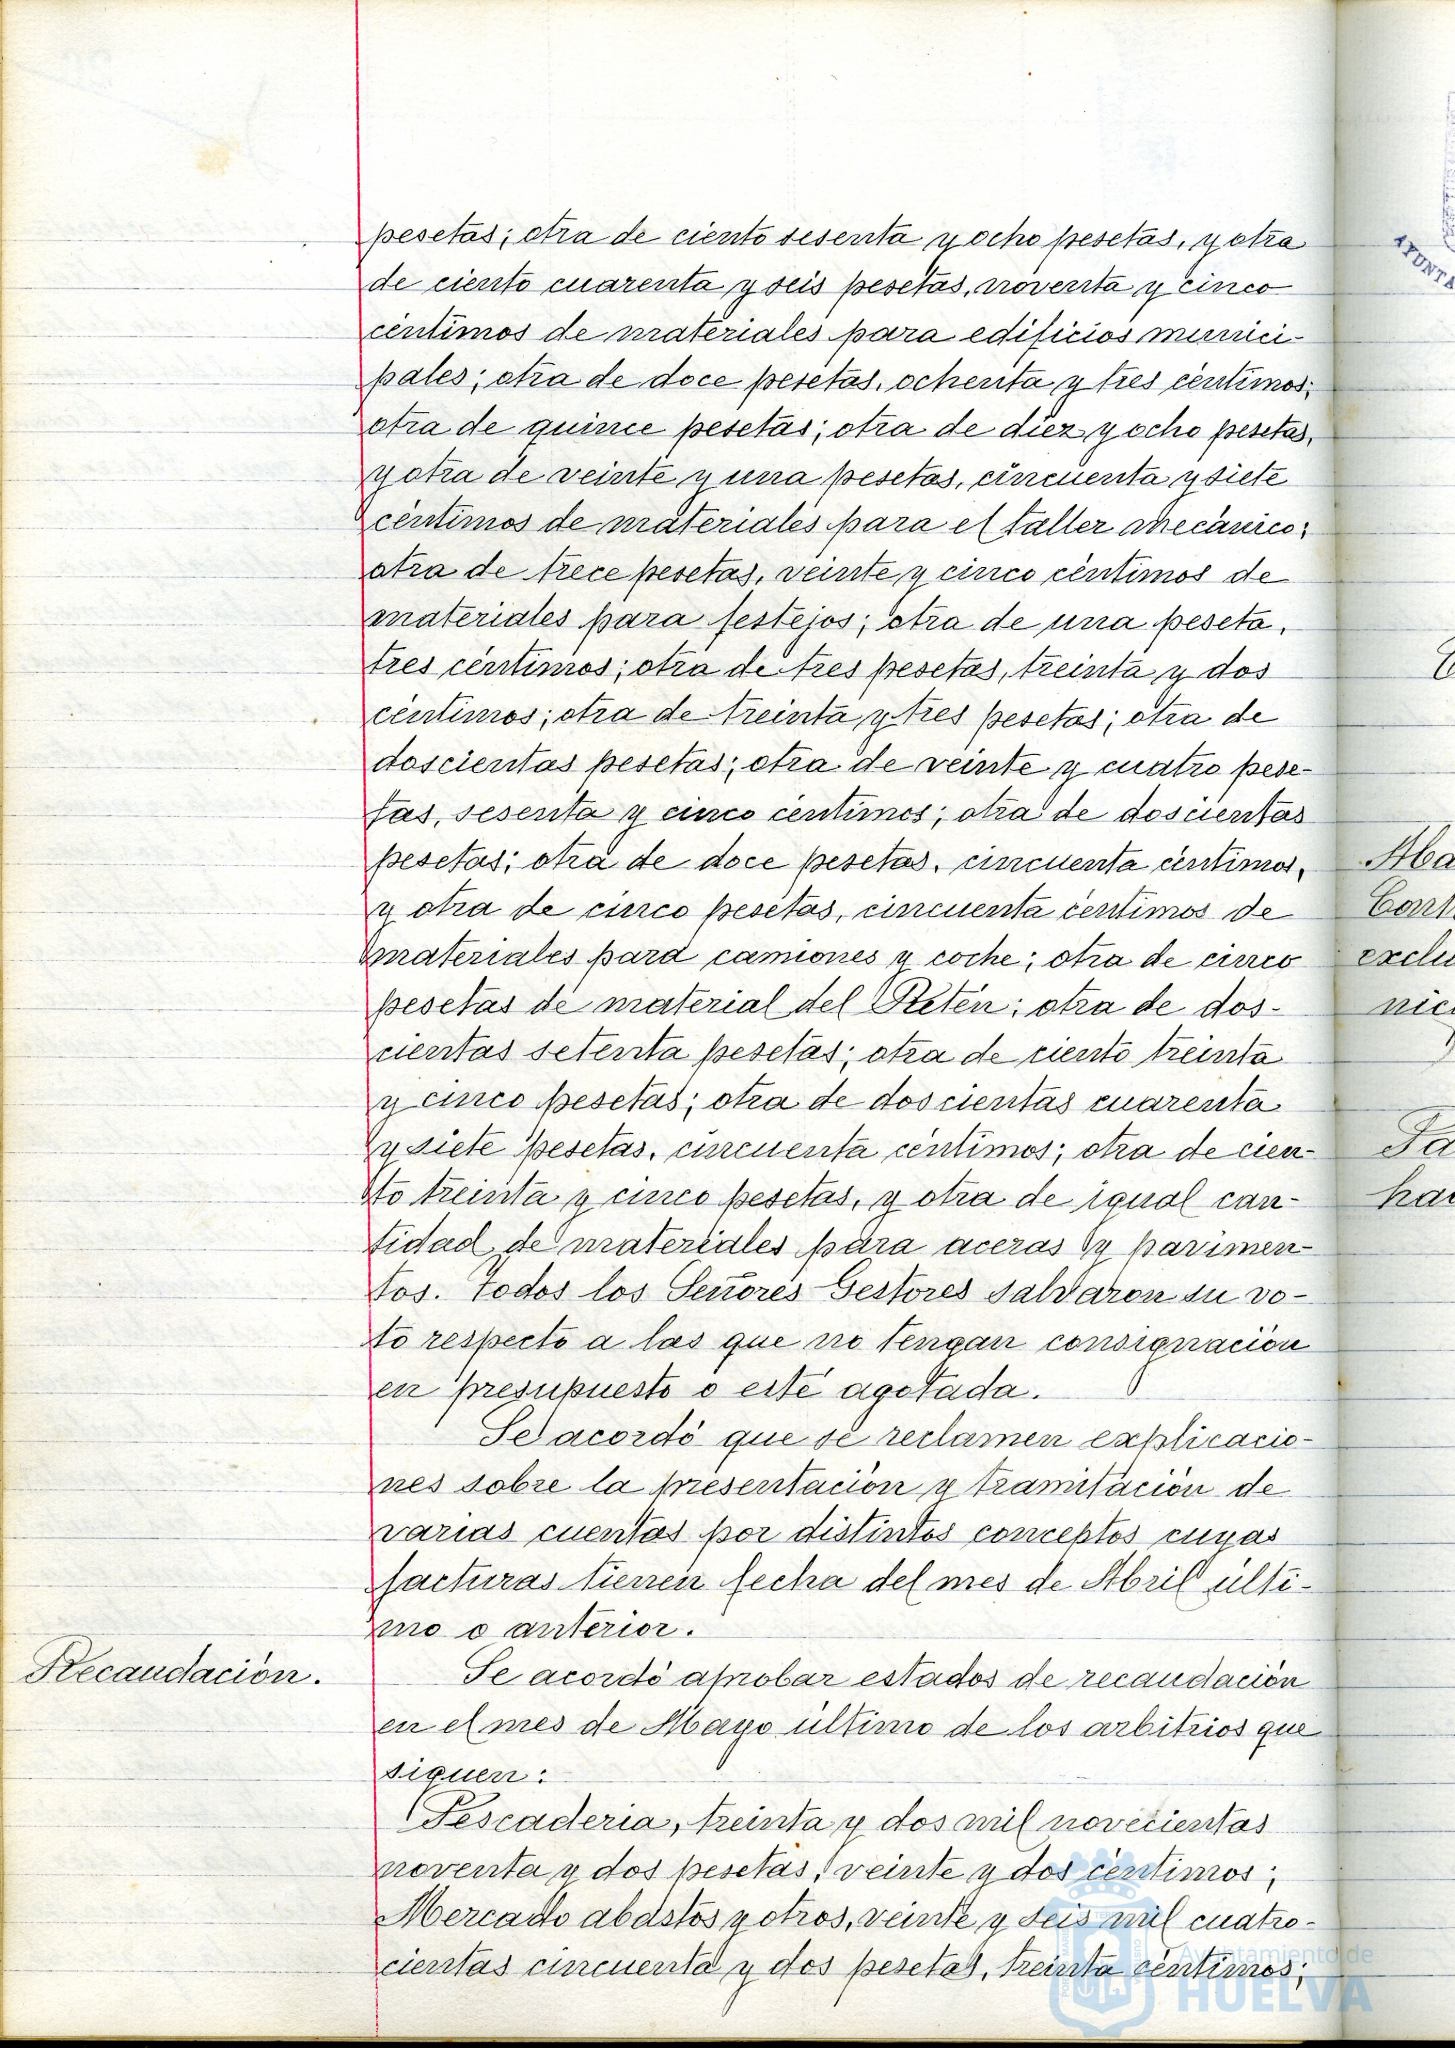 pesetas; otra de ciento sesenta y ocho pesetas, y otra
de ciento cuarenta y seis pesetas, noventa y cinco
céntimos de materiales para edificios munici-
pales; otra de doce pesetas, ochenta y tres céntimos;
otra de quince pesetas; otra de diez y ocho pesetas,
y otra de veinte y una pesetas, cincuenta y siete
céntimos de materiales para el taller mecánico;
otra de trece pesetas, veinte y cinco céntimos de
materiales para festejos; otra de una peseta,
tres céntimos; otra de tres pesetas, treinta y dos
céntimos; otra de treinta y tres pesetas; otra de
doscientas pesetas; otra de veinte y cuatro pese-
tas, sesenta y cinco centimos; otra de doscientas
pesetas; otra de doce pesetas, cincuenta céntimos,
y otra de cinco pesetas, cincuenta centimos de
materiales para camiones y coche; otra de cinco
pesetas de material del Retén; otra de dos-
cientas setenta pesetas; otra de ciento treinta
y cinco pesetas; otra de doscientas cuarenta
y siete pesetas, cincuenta céntimos; otra de cien-
to treinta y cinco pesetas, y otra de igual can-
tidad de materiales para aceras y pavimen-
tos. Todos los Señores Gestores salvaron su vo-
to respecto a las que no tengan consignación
en presupuesto o esté agotada.
Se acordó que se reclamen explicacio-
nes sobre la presentación y tramitación de
varias cuentas por distintos conceptos cuyas
facturas tienen fecha del mes de Abril últi-
mo o anterior.
Recaudación.
Se acordó aprobar estados de recaudación
en el mes de Mayo último de los arbitrios que
siguen:
Pescaderia, treinta y dos mil novecientas
noventa y dos pesetas, veinte y dos céntimos;
Mercado abastos y otros, veinte y seis mil cuatro-
cientas cincuenta y dos pesetas, treinta céntimos;
AYUNTA
Aba
exclu
nic
Fa
hac
Ayuntamiento de
HUELVA